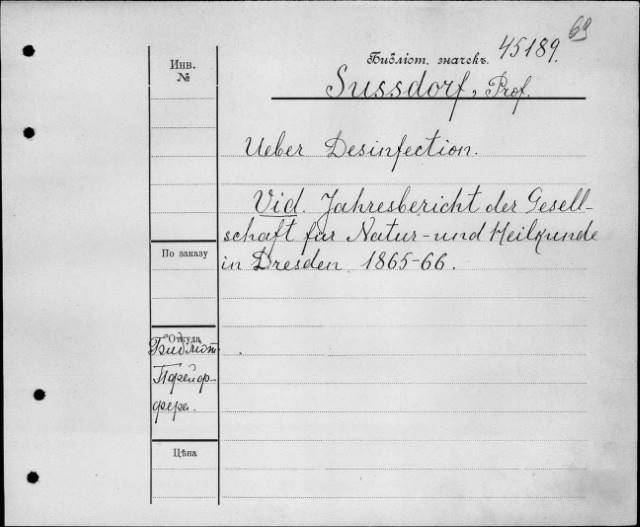 69
Библіот. значекъ. 45189.
Инв.
№
Sussdorf, Prof.
Ueber Desinfection.
Vid. Jahresbericht der Gesell-
schaft für Natur- und Heilkunde
in Dresden 1865-66.
По заказу
Откуда
Библіот.
Пфейф-
фера.
Цѣна